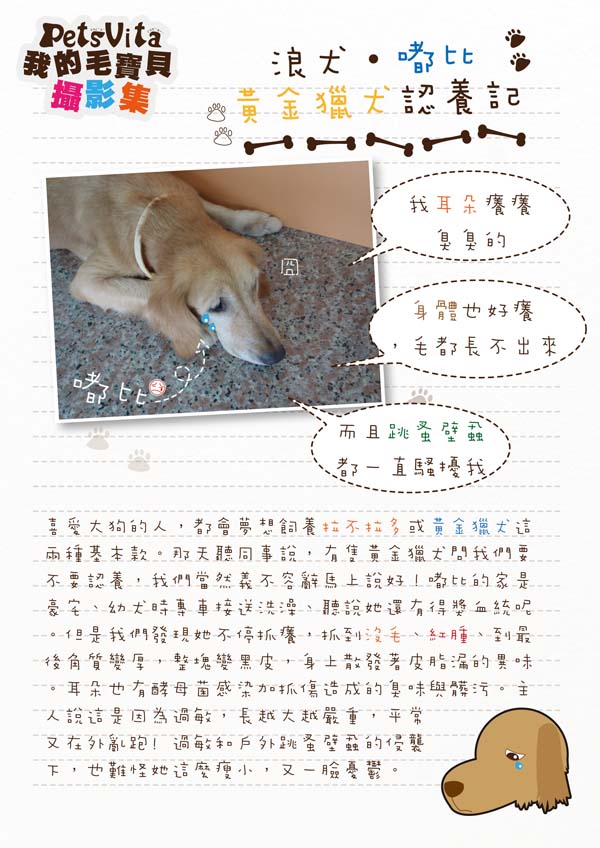 PetsVita
我的毛寶貝
攝影集
浪犬•嘟比
黃金獵犬認養記
我耳朵癢癢
臭臭的
囧
身體也好癢
，毛都長不出來
嘟比
而且跳蚤壁蝨
都一直騷擾我
喜愛大狗的人，都會夢想飼養拉不拉多或黃金獵犬這
兩種基本款。那天聽同事說，有隻黃金獵犬問我們要
不要認養，我們當然義不容辭馬上說好！嘟比的家是
豪宅、幼犬時專車接送洗澡、聽說她還有得獎血統呢
。但是我們發現她不停抓癢，抓到沒毛、紅腫、到最
後角質變厚，整塊變黑皮，身上散發著皮脂漏的異味
。耳朵也有酵母菌感染加抓傷造成的臭味與髒污。主
人說這是因為過敏，長越大越嚴重，平常
又在外亂跑！過敏和戶外跳蚤壁蝨的侵襲
下，也難怪她這麼瘦小，又一臉憂鬱。